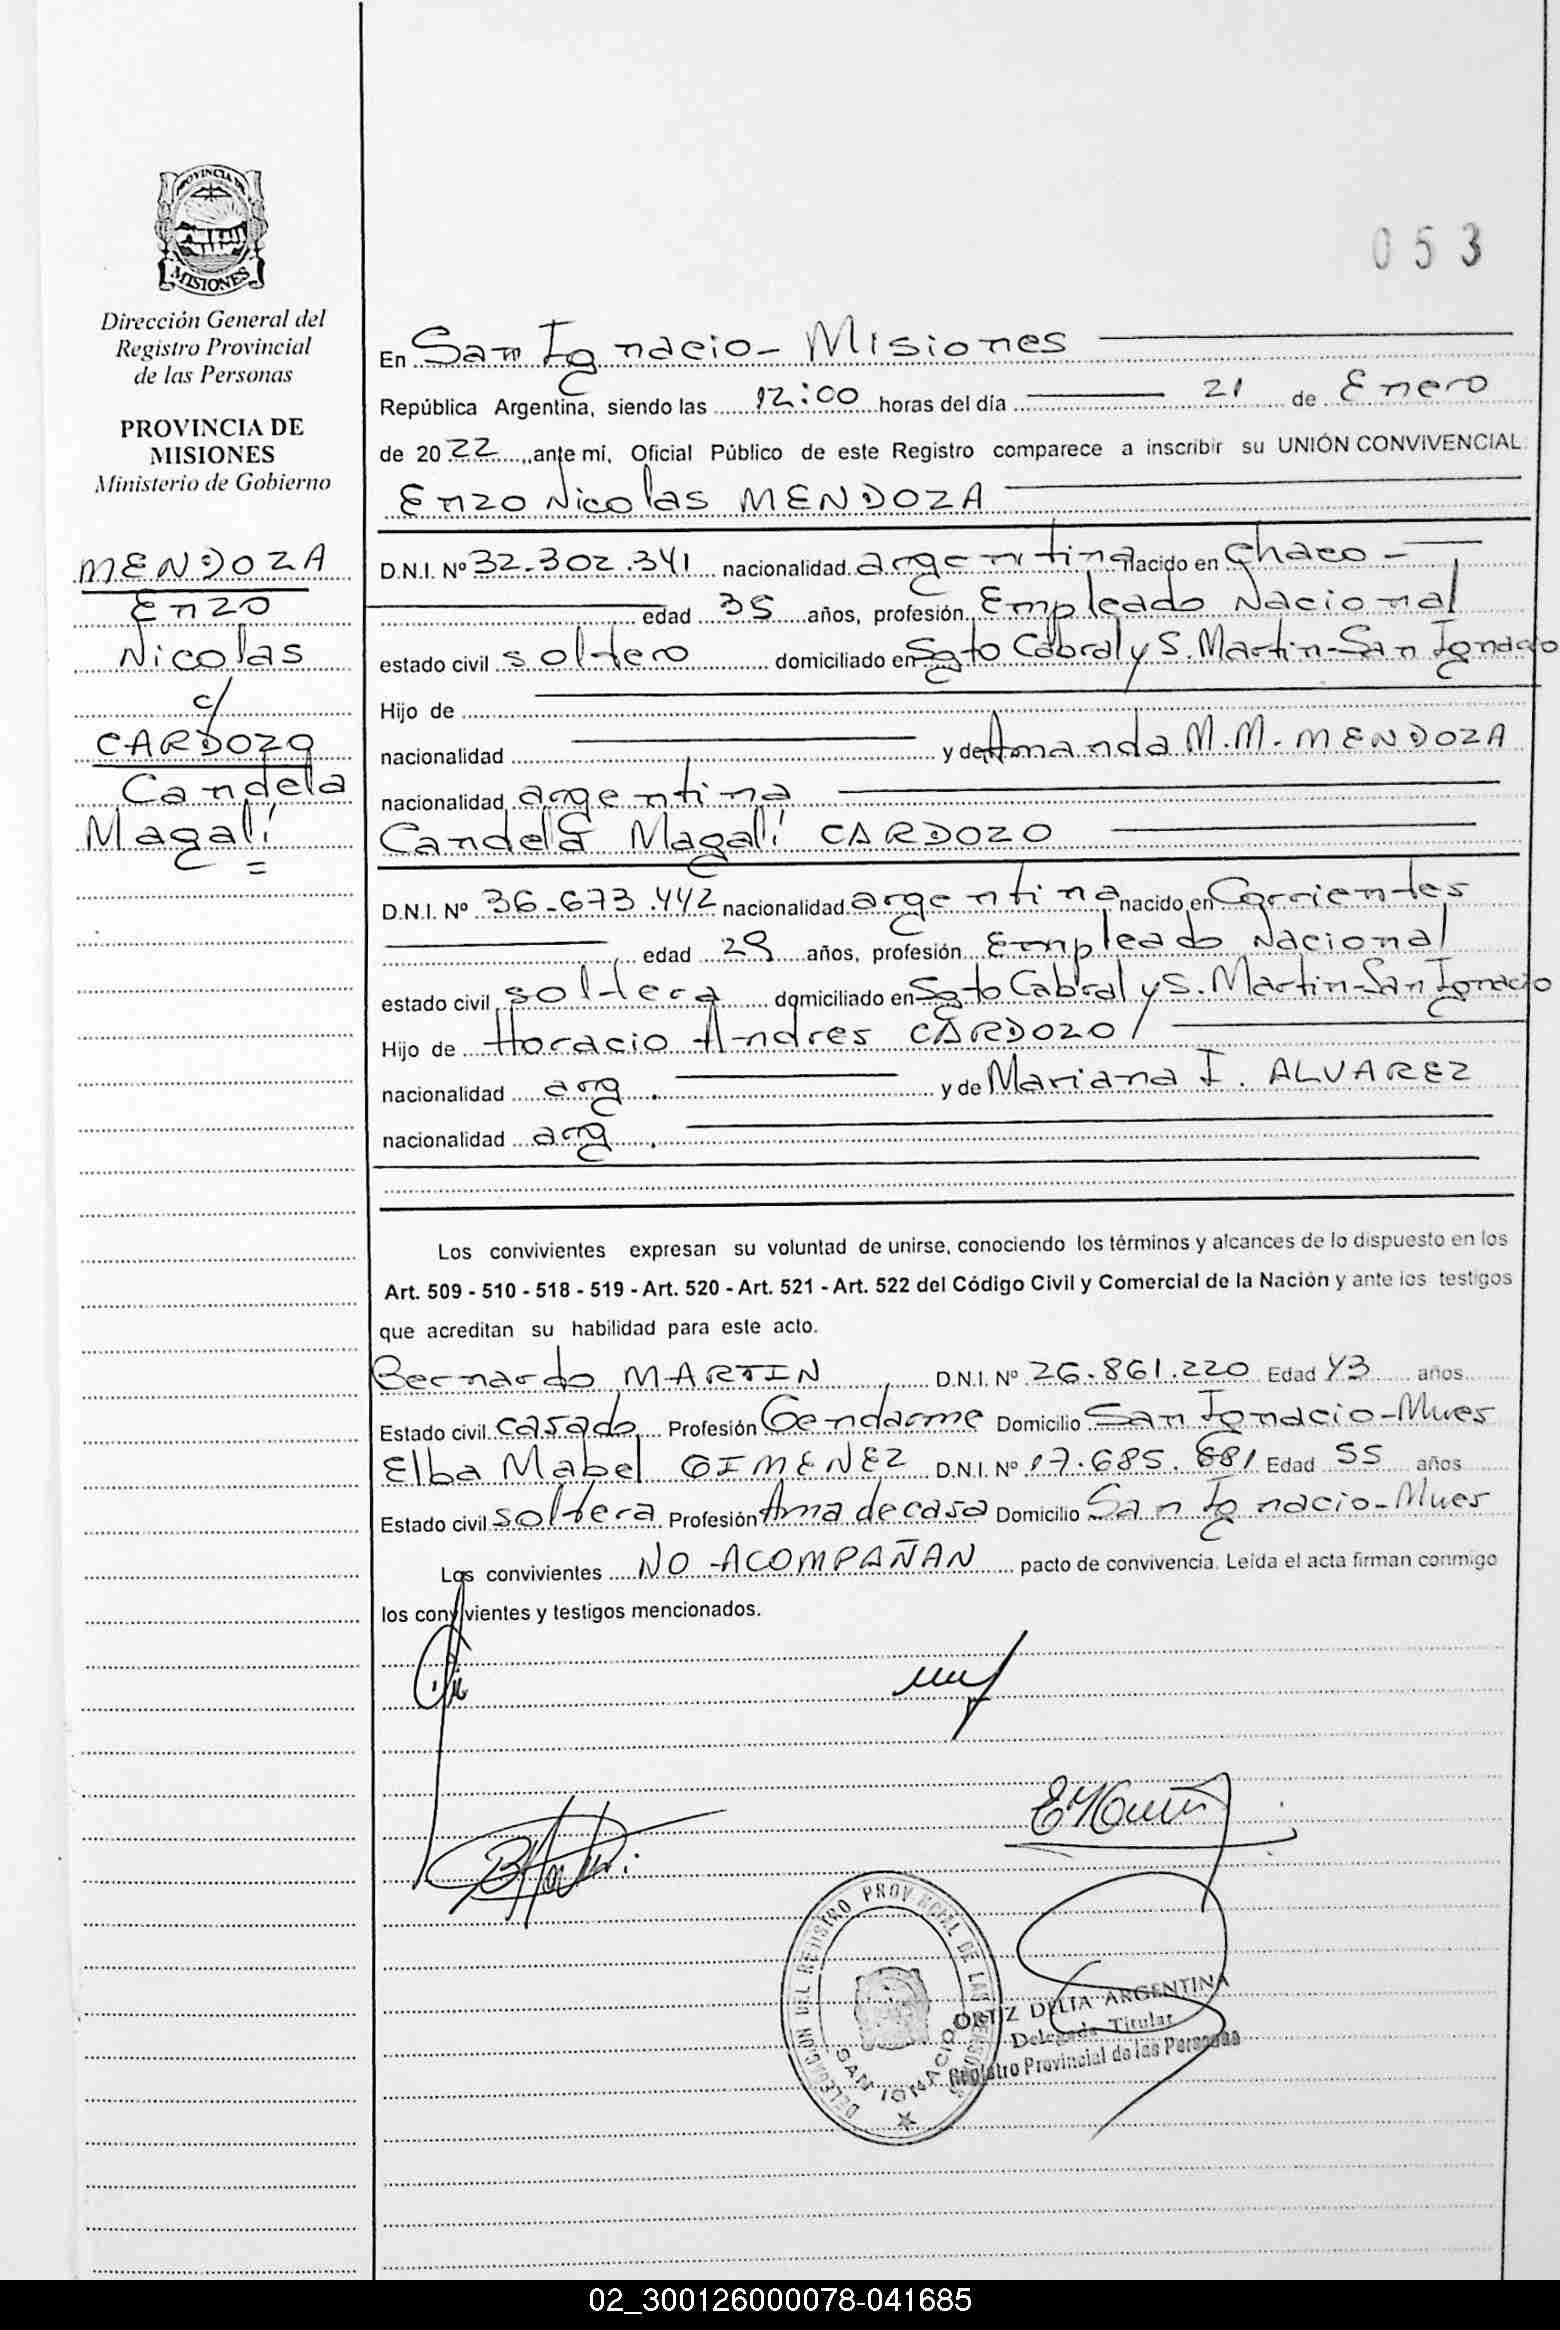 053
PROVINCIA DE
MISIONES
Dirección General del
Registro Provincial
de las Personas
PROVINCIA DE
MISIONES
Ministerio de Gobierno
MENDOZA
Enzo
Nicolas
c/
CARDOZO
Candela
Magalí
=
En San Ignacio - Misiones
República Argentina, siendo las 12:00 horas del día 21 de Enero
de 2022, ante mí, Oficial Público de este Registro comparece a inscribir su UNIÓN CONVIVENCIAL:
Enzo Nicolas MENDOZA
D.N.I. Nº 32.302.341 nacionalidad argentina nacido en Chaco -
edad 35 años, profesión Empleado Nacional
estado civil soltero domiciliado en Sgto Cabral y S. Martin - San Ignacio
Hijo de
nacionalidad y de Amanda M.M. MENDOZA
nacionalidad argentina
Candela Magalí CARDOZO
D.N.I. Nº 36.673.442 nacionalidad argentina nacido en Corrientes
edad 29 años, profesión Empleado Nacional
estado civil soltera domiciliado en Sgto Cabral y S. Martin - San Ignacio
Hijo de Horacio Andres CARDOZO
nacionalidad arg. y de Mariana I. ALVAREZ
nacionalidad arg.
Los convivientes expresan su voluntad de unirse, conociendo los términos y alcances de lo dispuesto en los
Art. 509 - 510 - 518 - 519 - Art. 520 - Art. 521 - Art. 522 del Código Civil y Comercial de la Nación y ante los testigos
que acreditan su habilidad para este acto.
Bernardo MARTIN D.N.I. Nº 26.861.220 Edad 43 años
Estado civil casado Profesión Gendarme Domicilio San Ignacio - Mnes
Elba Mabel GIMENEZ D.N.I. Nº 17.685.681 Edad 55 años
Estado civil soltera Profesión Ama de casa Domicilio San Ignacio - Mnes
Los convivientes NO ACOMPAÑAN pacto de convivencia. Leída el acta firman conmigo
los convivientes y testigos mencionados.
DELEGACION DEL REGISTRO PROVINCIAL DE LAS PERSONAS
SAN IGNACIO
ORTIZ DELIA ARGENTINA
Delegada Titular
Registro Provincial de las Personas
02_300126000078-041685